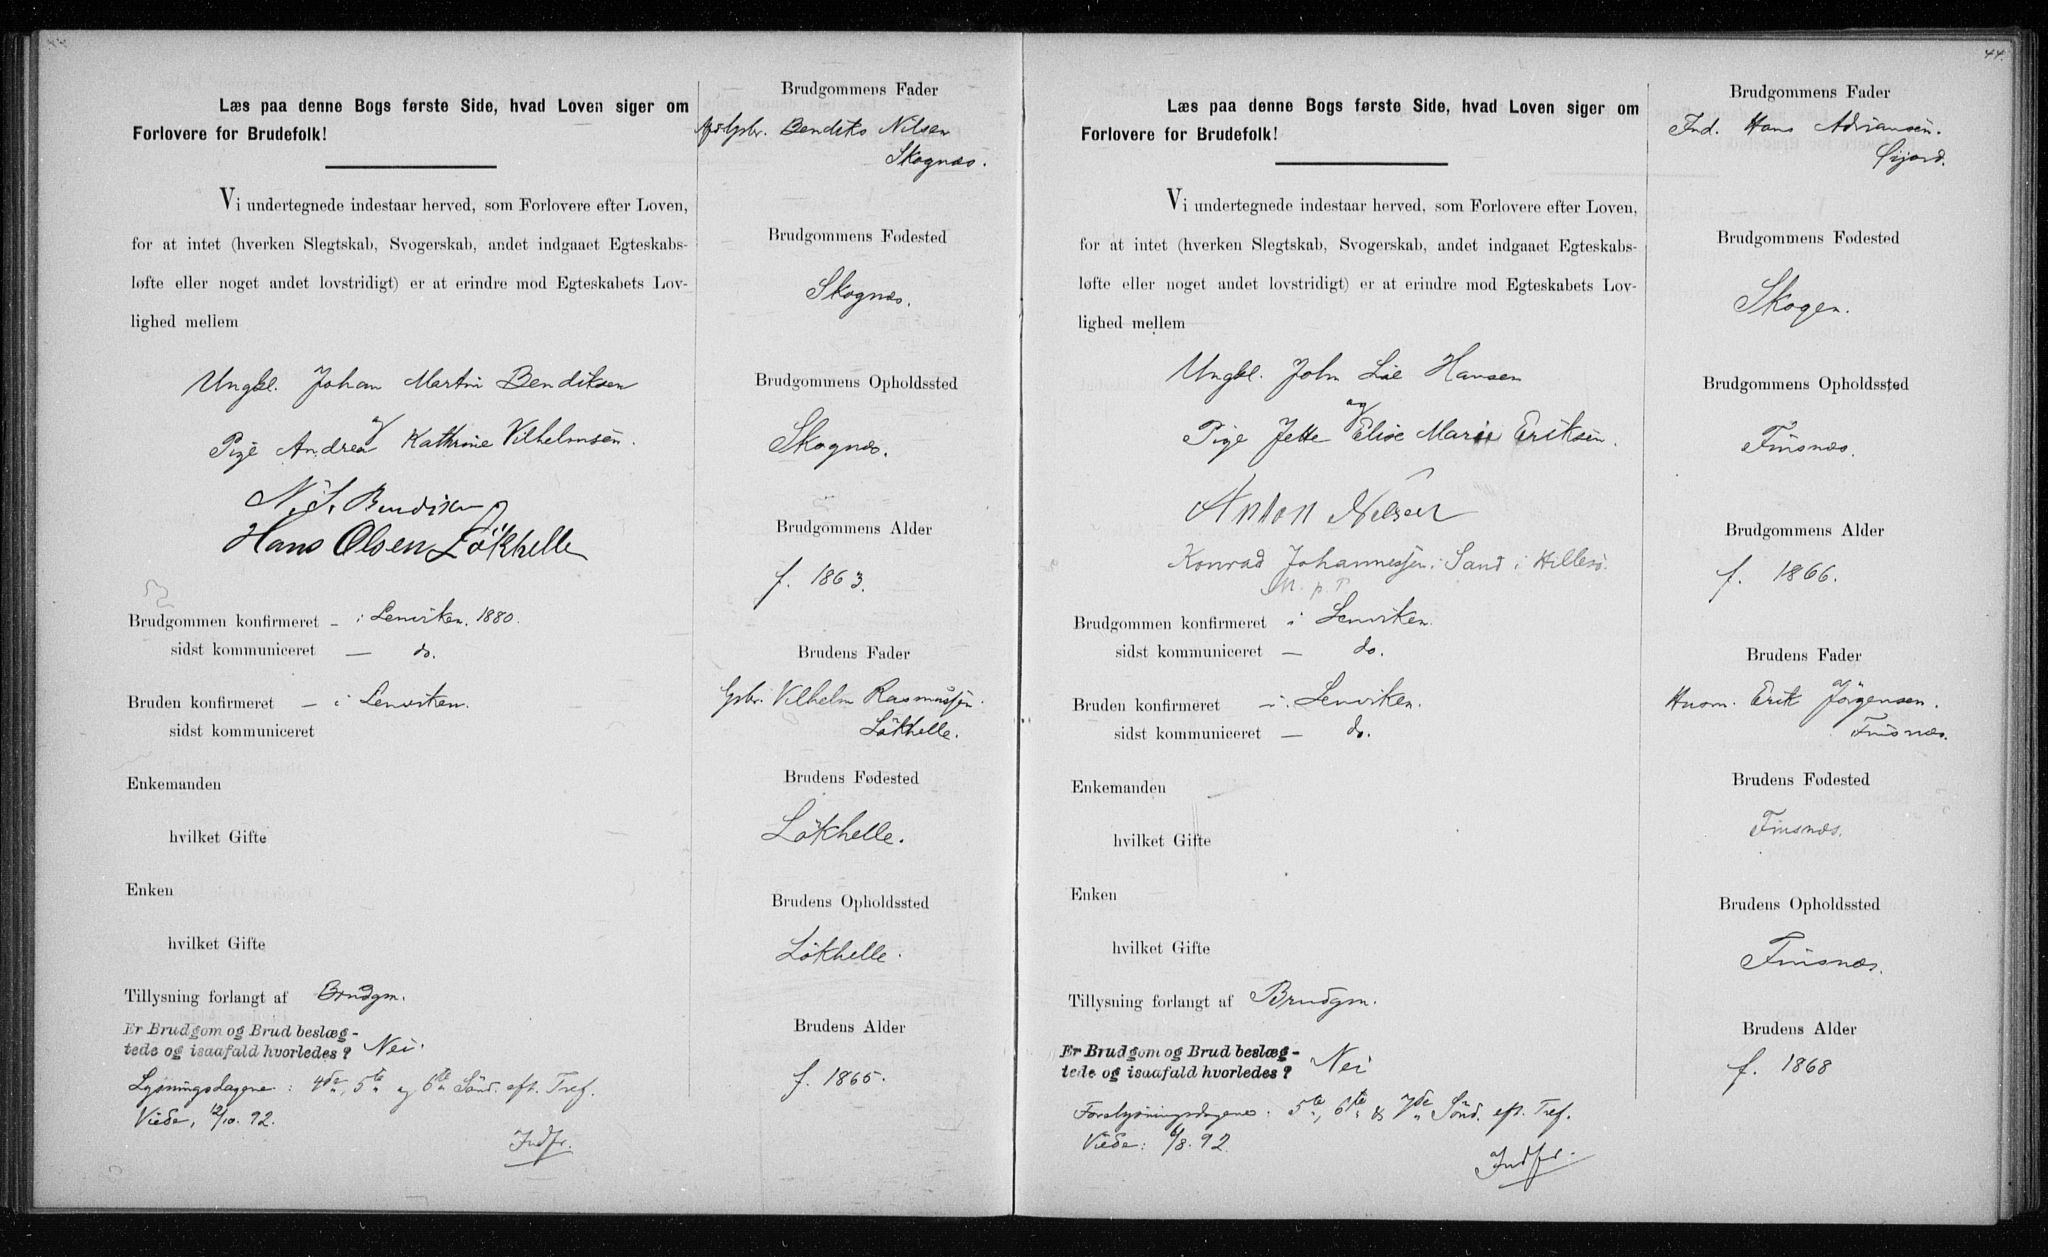 Læs paa denne Bogs første Side, hvad Loven siger om
Forlovere for Brudefolk!
Vi undertegnede indestaar herved, som Forlovere efter Loven,
for at intet (hverken Slegtskab, Svogerskab, andet indgaaet Egteskabs-
løfte eller noget andet lovstridigt) er at erindre mod Egteskabets Lov-
lighed mellem
Ungkl. Johan Martin Bendiksen
og
Pige Andrea Kathrine Vilhelmsen.
N. S. Bendiksen
Hans Olsen Lökhelle
Brudgommen konfirmeret - i Lenviken. 1880.
sidst kommuniceret — do.
Bruden konfirmeret — i Lenviken.
sidst kommuniceret
Enkemanden
hvilket Gifte
Enken
hvilket Gifte
Tillysning forlangt af Brudgm.
Er Brudgom og Brud beslæg-
tede og isaafald hvorledes? Nei.
Lysningsdagene: 4de, 5te og 6te Sönd. eft. Tref.
Viede, 12/10. 92.
Indfr.
Brudgommens Fader
Gbr. Bendiks Nilsen
Skognæs.
Brudgommens Fødested
Skognæs.
Brudgommens Opholdssted
Skognæs.
Brudgommens Alder
f. 1863.
Brudens Fader
Gbr. Vilhelm Rasmussen.
Lökhelle.
Brudens Fødested
Lökhelle.
Brudens Opholdssted
Lökhelle.
Brudens Alder
f. 1865.
44.
Læs paa denne Bogs første Side, hvad Loven siger om
Forlovere for Brudefolk!
Vi undertegnede indestaar herved, som Forlovere efter Loven,
for at intet (hverken Slegtskab, Svogerskab, andet indgaaet Egteskabs-
løfte eller noget andet lovstridigt) er at erindre mod Egteskabets Lov-
lighed mellem
Ungkl. John Lie Hansen
og
Pige Jette Elise Marie Eriksen.
Anton Nilsen
Konrad Johannessen i Sand i Hillesö.
M. p. P.
Brudgommen konfirmeret i Lenviken.
sidst kommuniceret — do.
Bruden konfirmeret — i Lenviken.
sidst kommuniceret — do.
Enkemanden
hvilket Gifte
Enken
hvilket Gifte
Tillysning forlangt af Brudgm.
Er Brudgom og Brud beslæg-
tede og isaafald hvorledes? Nei
Forelysningsdagene: 5te, 6te & 7de Sönd. eft. Tref.
Viede: 6/8. 92.
Indfr.
Brudgommens Fader
Ind. Hans Adriansen.
Gijord.
Brudgommens Fødested
Skogen.
Brudgommens Opholdssted
Finsnæs.
Brudgommens Alder
f. 1866.
Brudens Fader
Husm. Erik Jörgensen.
Finsnæs.
Brudens Fødested
Finsnæs.
Brudens Opholdssted
Finsnæs.
Brudens Alder
f. 1868